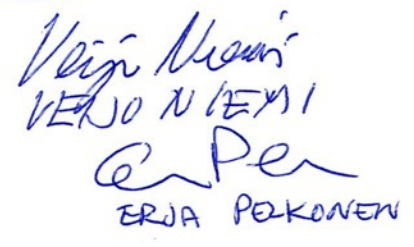 Veijo Niemi
VEIJO NIEMI
ERJA PELKONEN